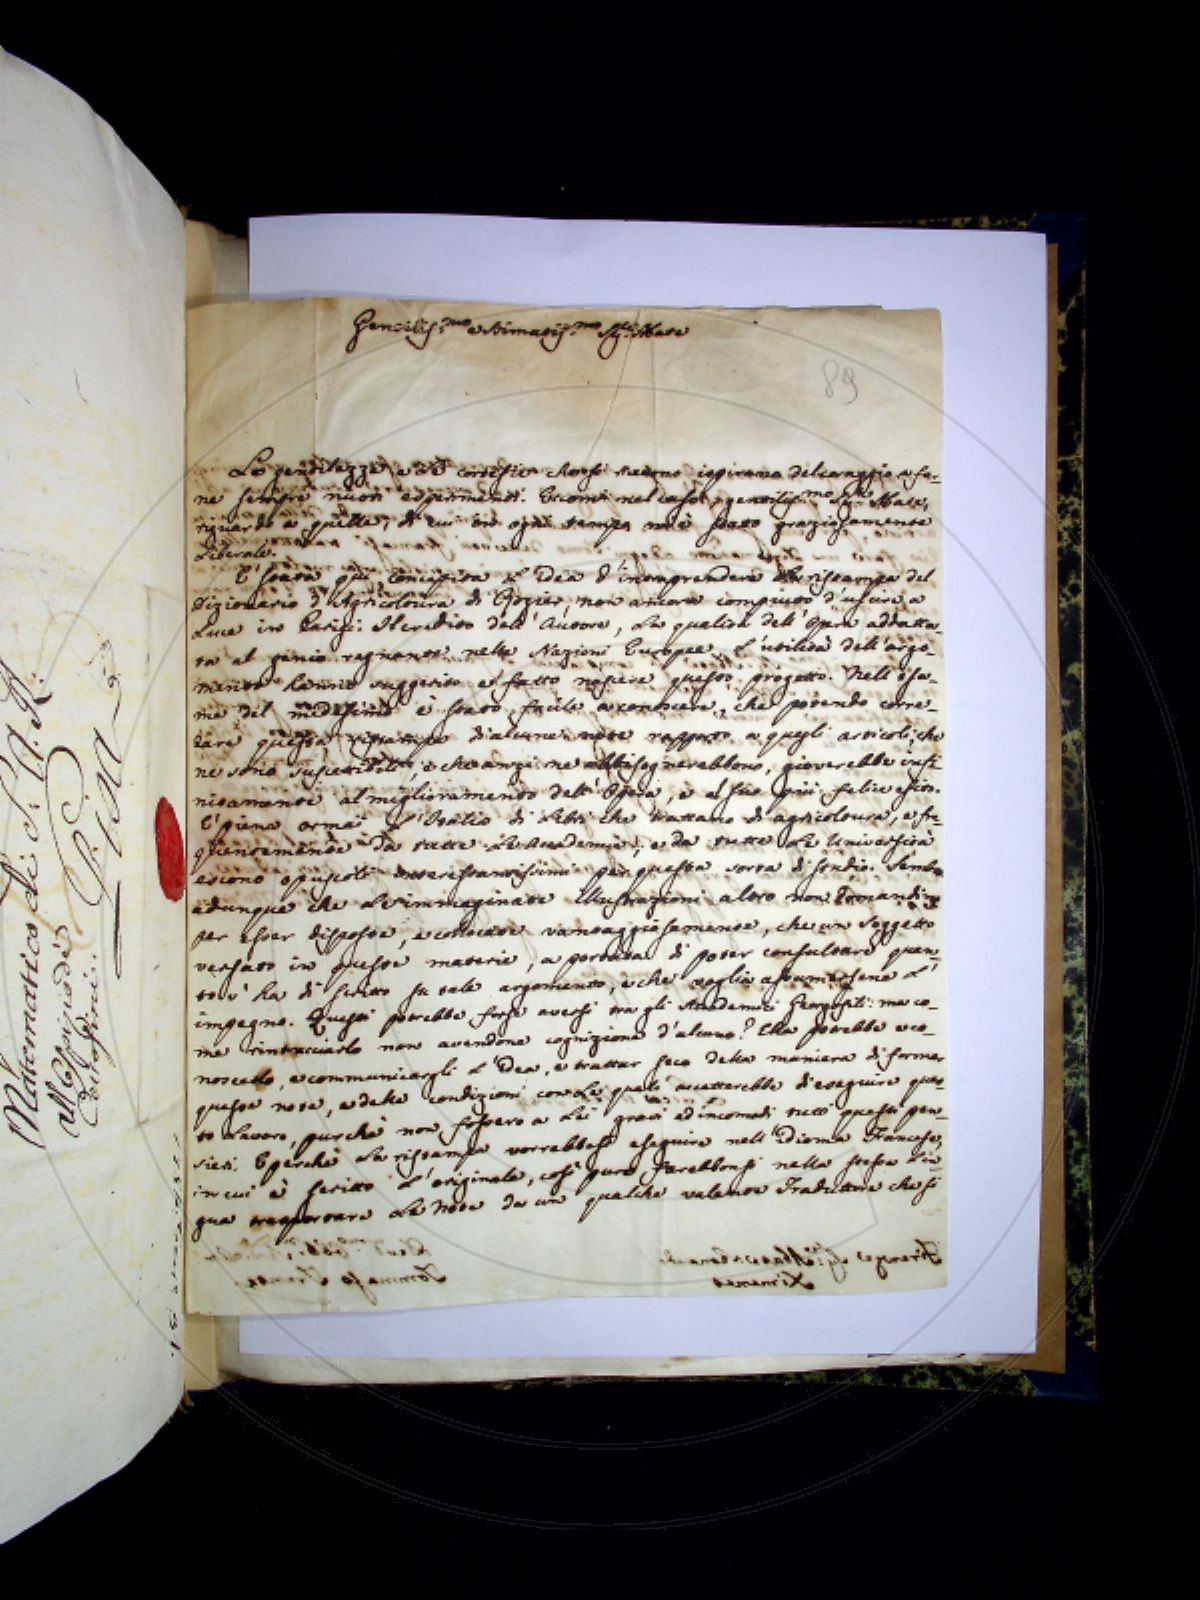 Gentilis.mo e Stimatis.mo Sig.r Abate
89
La gentilezza, e la cortesia stessa ispirano del coraggio a far-
ne sempre nuovi esperimenti. Eccomi nel caso, gentilis.mo Sig.r Abate,
riguardo a quelle, di cui in ogni tempo m'è stato graziosamente
Liberale.
E' stata qui concepita l'Idea d'intraprendere la ristampa del
Dizionario d'Agricoltura di Rozier, non ancora compiuto d'uscire a
Luce in Parigi. Il credito dell'Autore, la qualità dell'Opera adatta-
ta al genio regnante nelle Nazioni Europee, l'utilità dell'argo-
mento hanno suggerito e fatto nascere questo progetto. Nell'esa-
me del medesimo è stato facile a conoscere, che potendo corre-
dare questa ristampa di alcune note rapporto a quegli articoli, che
ne sono suscettibili, e che anzi ne abbisognerebbono, gioverebbe infi-
nitamente al miglioramento dell'Opera, e al suo più felice esito.
E' piena ormai l'Italia di Libri che trattano di agricoltura, e fre-
quentemente da tutte le Accademie, e da tutte le Università
escono opuscoli interessantissimi per questa sorta di studio. Sembra
adunque che le immaginate Illustrazioni altro non dimandino
per esser disposte, e collocate vantaggiosamente, che un Soggetto
versato in queste materie, a portata di poter consultare quan-
to v'ha di scritto su tale argomento, e che voglia assumersene l'
impegno. Questi potrebbe forse aversi tra gli Accademici Georgofili: ma co-
me rintracciarlo non avendone cognizione d'alcuno? Ella potrebbe co-
noscerlo, e communicargli l'Idea, e trattar seco della maniera di formar
queste note, e delle condizioni con le quali accetterebbe di eseguire ques-
to Lavoro, purchè non fossero a Lei gravi ed incomodi tutti questi pen-
sieri. E perchè la ristampa vorrebbesi eseguire nell'Idioma Francese,
in cui è scritto l'originale, così pure, farebbonsi nella stessa Lin-
gua trasportare le Note da un qualche valente Traduttore che si
Matematico di S. A. R.
all'Ospizio de'
Firenze Sig.r Abate Leonardo
Ximenes
Tommaso